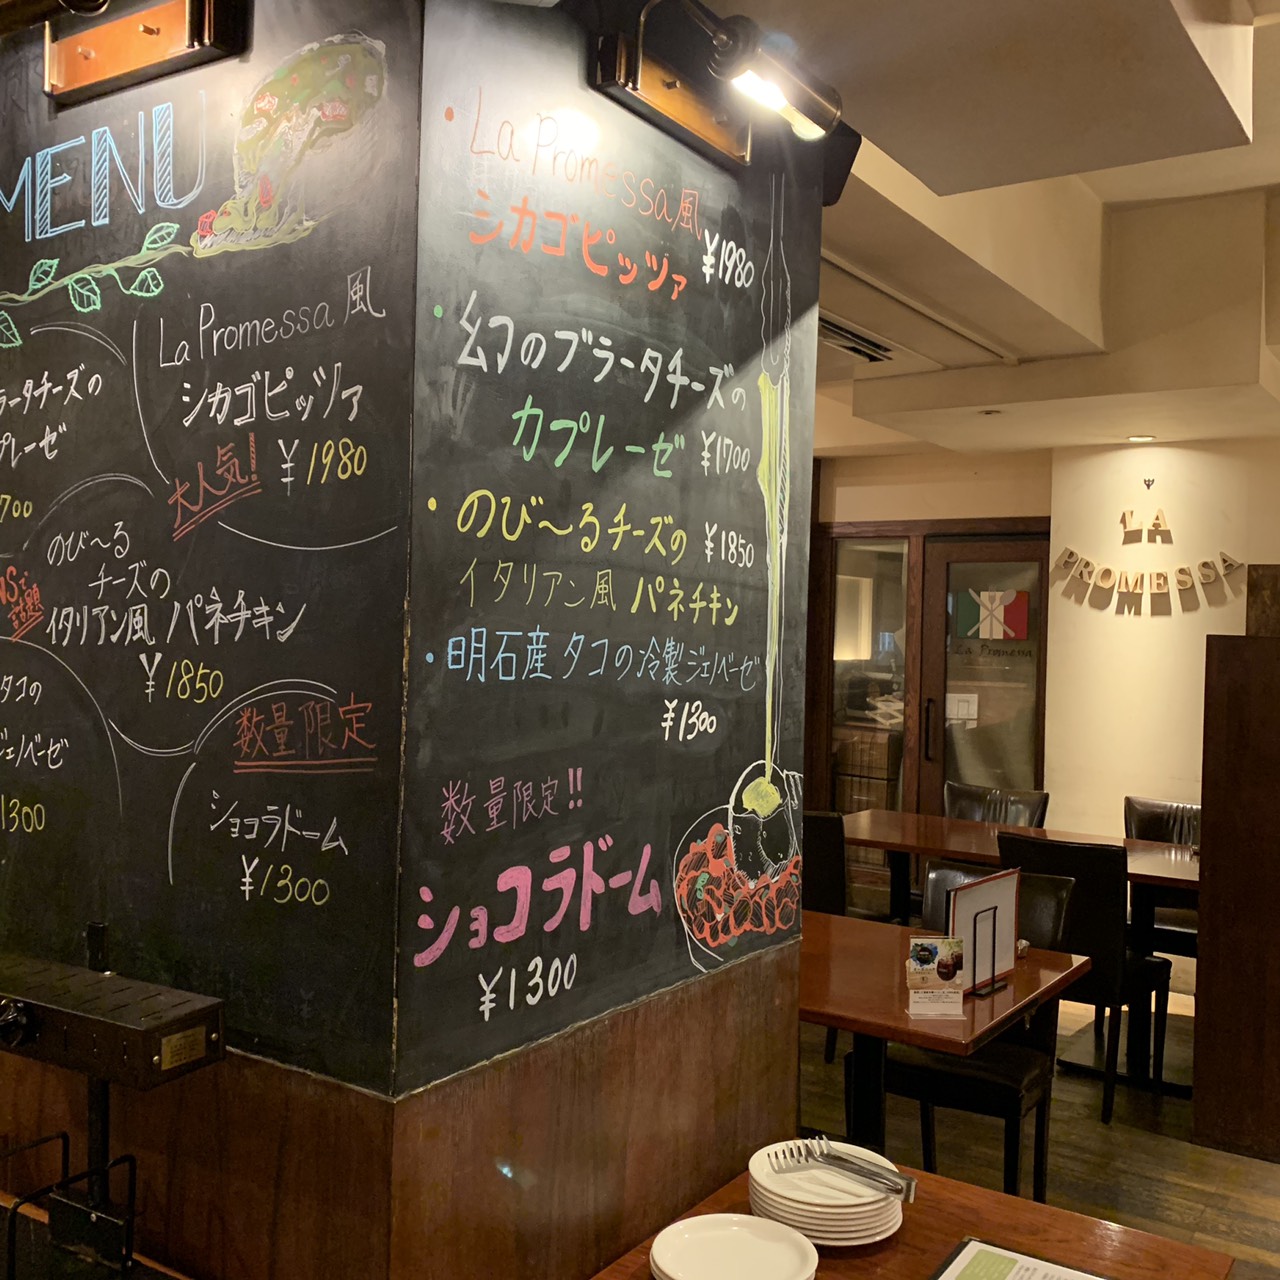 MENU
La Promessa風
シカゴピッツァ
大人気! ¥1980
ラータチーズの
プレーゼ
700
のび〜る
チーズの
イタリアン風 パネチキン
¥1850
SNSで
話題
タコの
ジェノベーゼ
1300
数量限定
ショコラドーム
¥1300
・La Promessa風
シカゴピッツァ ¥1980
・幻のブラータチーズの
カプレーゼ ¥1700
・のび〜るチーズの ¥1850
イタリアン風 パネチキン
・明石産タコの冷製ジェノベーゼ
¥1300
数量限定!!
ショコラドーム
¥1300
LA
PROMESSA
La Promessa